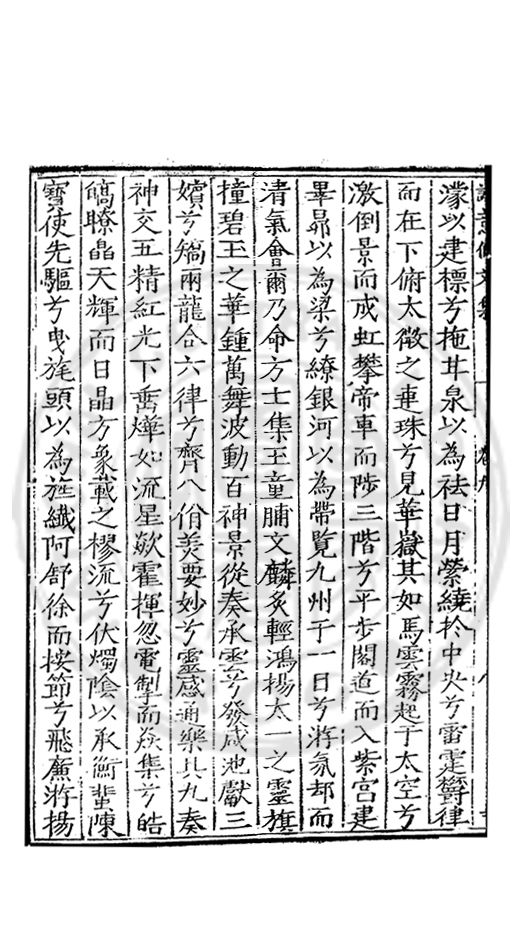 濛以建標兮拖甘泉以為袪日月縈繞於中央兮雷霆鬱律
而在下俯太微之連珠兮見華嶽其如馬雲霧起于太空兮
激倒景而成虹攀帝車而陟三階兮平步閣道而入紫宮建
畢昴以為梁兮繚銀河以為帶覽九州于一日兮游氛却而
清氣會爾乃命方士集玉童脯文麟炙輕鴻揚太一之靈旗
撞碧玉之華鍾萬舞波動百神景從奏承雲兮發咸池獻三
嬪兮矯兩龍合六律兮齊八佾羨要妙兮靈感通樂具九奏
神交五精紅光下垂燁如流星歘霍揮忽電掣而猋集兮皓
皜瞭晶天輝而日晶方象載之樛流兮伏燭陰以承衡蜚陳
寶使先驅兮曳旄頭以為旌纖阿舒徐而按節兮飛廉游揚